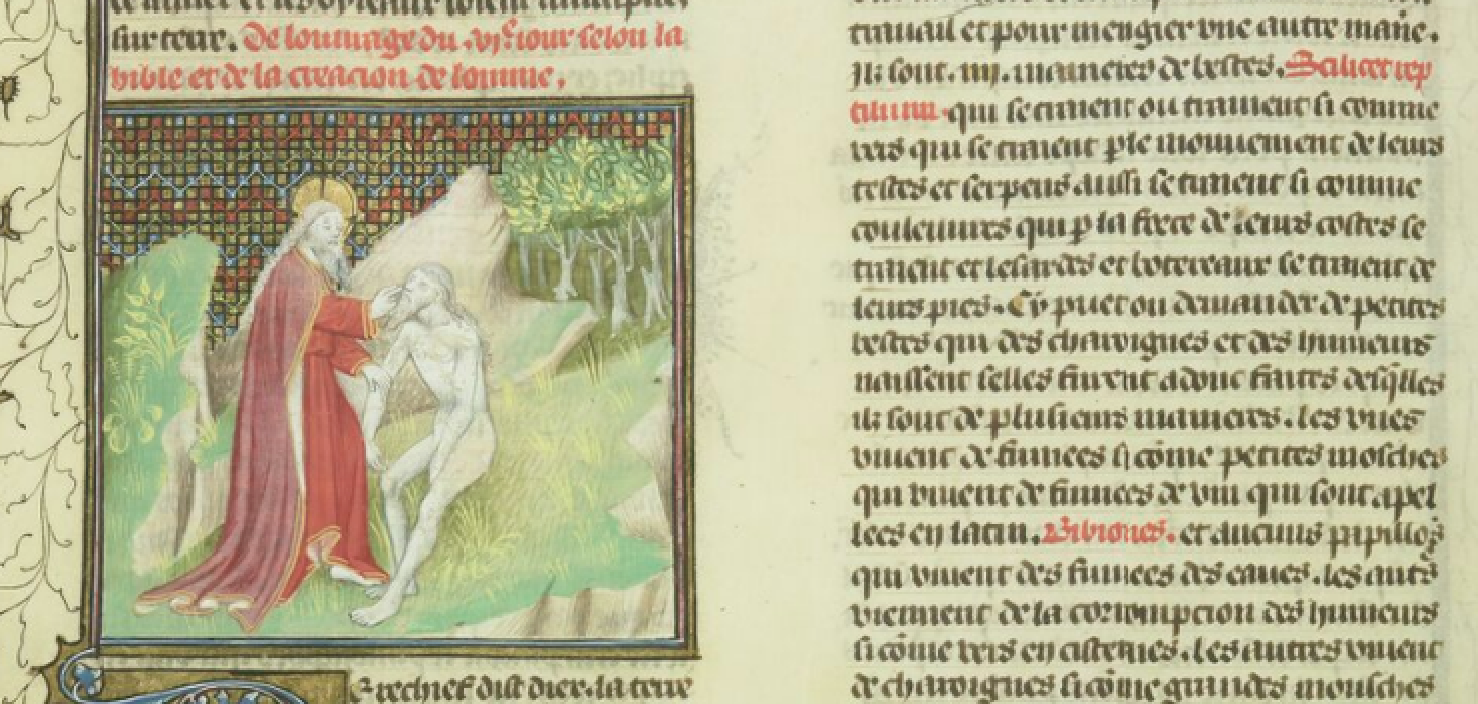 sur terre. De louurage du .vjᵉ. iour selon la
bible et de la creacion de lomme.
Derechief dist dieu. la terre
trauail et pour mengier vne autre maniē.
Ilz sont .iij. manieres de bestes. Scilicet rep
tilium. qui se traient ou trainent si comme
vers qui se traient ꝑ le mouuement de leurs
testes et serpens aussi se traient si comme
couleuures qui ꝑ la force de leurs costes se
traient et lesardes et botereaux se traient de
leurs pies. Cy puet on demander de petites
bestes qui des charoignes et des humeurs
naissent selles furent adonc faites desq̄lles
ilz sont de plusieurs manieres. Les vnes
viuent de fumees si cōme petites mosches
qui viuent de fumees de vin qui sont apel
lees en latin. Bibiones. et aucuns papillōs
qui viuent des fumees des eaues. Les autˢ
viennent de la corrompcion des humeurs
si cōme vers en cisternes. Les autres viuent
de charoignes si cōme grandes mousches